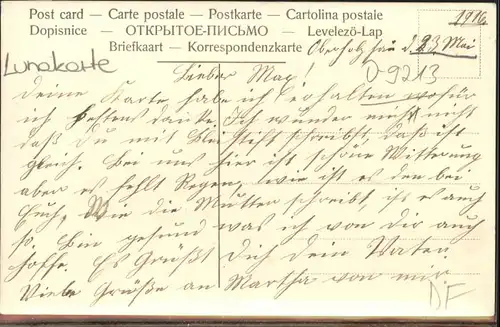 Post card — Carte postale — Postkarte — Cartolina postale
Dopisnice — ОТКРЫТОЕ-ПИСЬМО — Levelező-Lap
Briefkaart — Korrespondenzkarte
1916
d 23 Mai
Lunakarte
D-9213
Lieber Max!
deine Karte habe ich erhalten wofür
ich bestens danke. Ich wunder mich nicht
daß du mit Bleistift schreibst, daß ist
gleich. Bei uns hier ist schöne Witterung
aber es fehlt Regen, wie ist es den bei
Euch, Wie die Mutter schreibt, ist es auch
so. Bin gesund was ich von dir auch
hoffe. Es Grüßt Dich dein Vater.
Viele Grüße an Martha von mir
DF